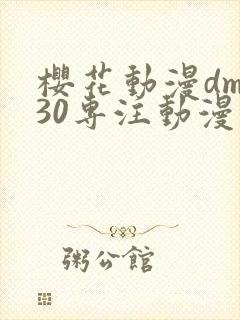 櫻花動漫dm
30專注動漫
粥公館